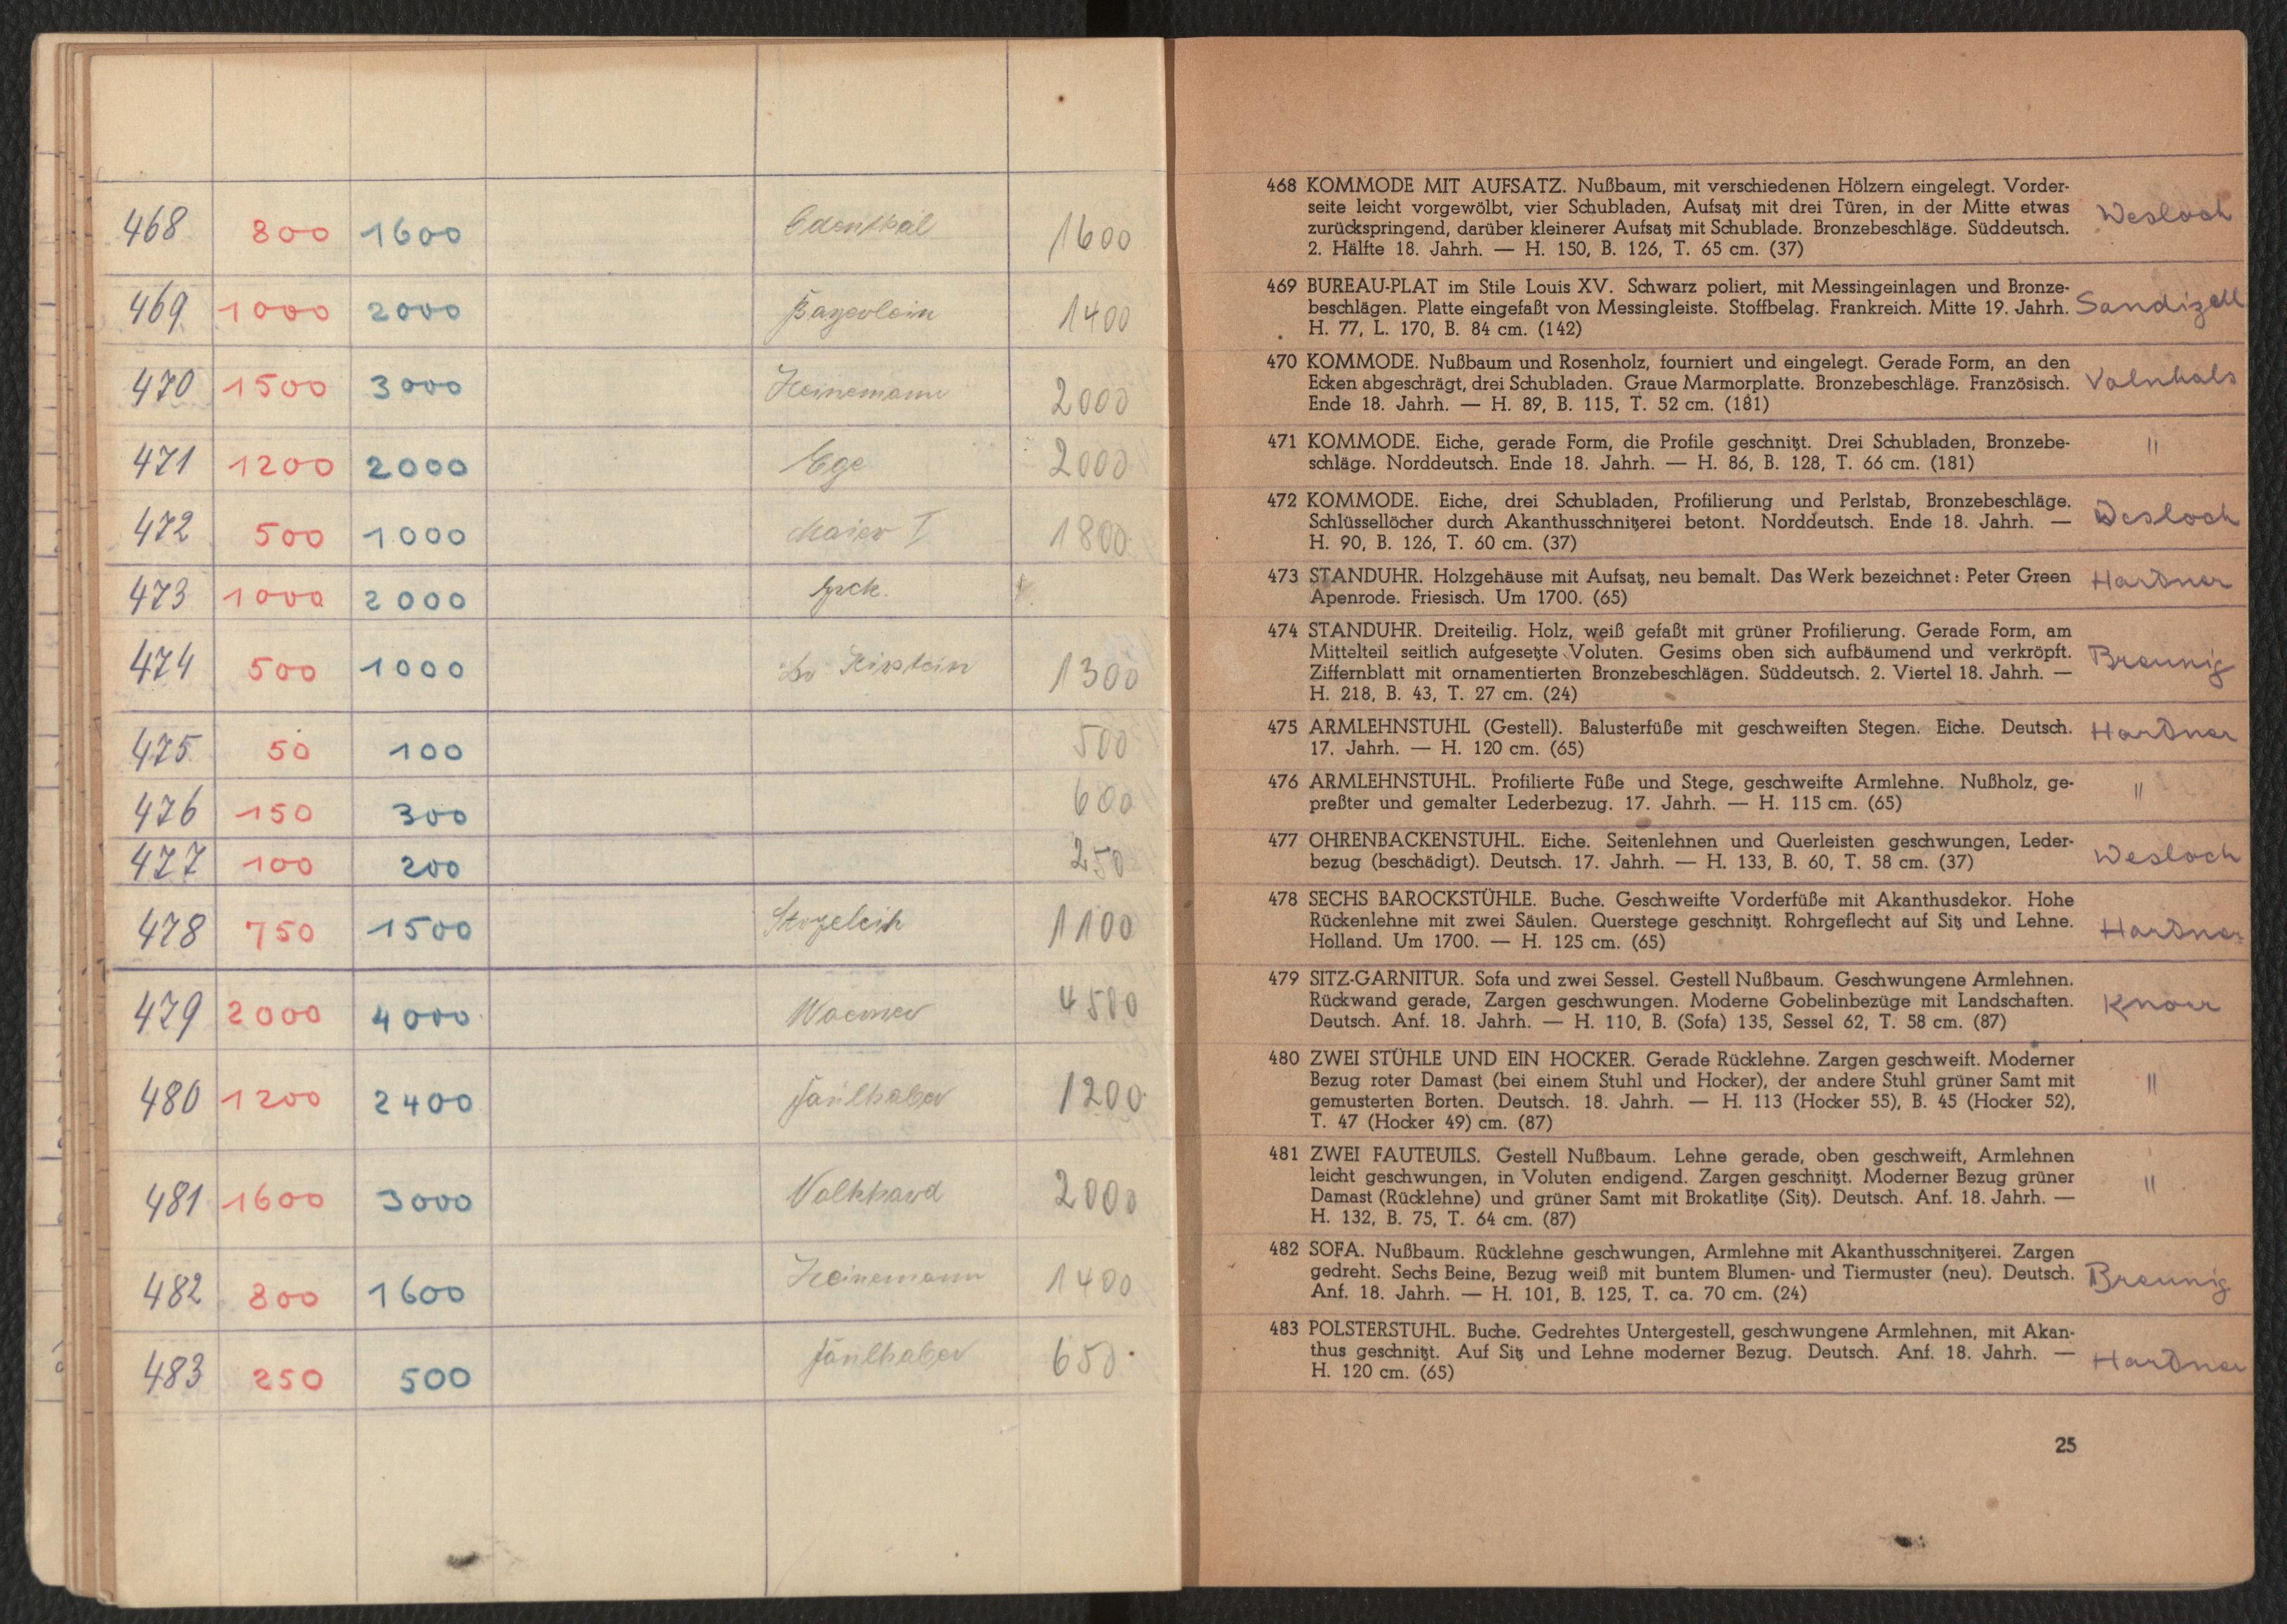 468 800 1600 Odenthal 1600
469 1000 2000 Bayerlein 1400
470 1500 3000 Heinemann 2000
471 1200 2000 Ege 2000
472 500 1000 Maier I 1800
473 1000 2000
474 500 1000 1300
475 50 100 500
476 150 300 600
477 100 200 250
478 750 1500 1100
479 2000 4000 4500
480 1200 2400 Faulhaber 1200
481 1600 3000 Volkhard 2000
482 800 1600 Heinemann 1400
483 250 500 Faulhaber 650
468 KOMMODE MIT AUFSATZ. Nußbaum, mit verschiedenen Hölzern eingelegt. Vorder-
seite leicht vorgewölbt, vier Schubladen, Aufsatz mit drei Türen, in der Mitte etwas
zurückspringend, darüber kleinerer Aufsatz mit Schublade. Bronzebeschläge. Süddeutsch.
2. Hälfte 18. Jahrh. — H. 150, B. 126, T. 65 cm. (37)
Wesloch
469 BUREAU-PLAT im Stile Louis XV. Schwarz poliert, mit Messingeinlagen und Bronze-
beschlägen. Platte eingefaßt von Messingleiste. Stoffbelag. Frankreich. Mitte 19. Jahrh.
H. 77, L. 170, B. 84 cm. (142)
Sandizell
470 KOMMODE. Nußbaum und Rosenholz, fourniert und eingelegt. Gerade Form, an den
Ecken abgeschrägt, drei Schubladen. Graue Marmorplatte. Bronzebeschläge. Französisch.
Ende 18. Jahrh. — H. 89, B. 115, T. 52 cm. (181)
Valnhals
471 KOMMODE. Eiche, gerade Form, die Profile geschnitzt. Drei Schubladen, Bronzebe-
schläge. Norddeutsch. Ende 18. Jahrh. — H. 86, B. 128, T. 66 cm. (181)
"
472 KOMMODE. Eiche, drei Schubladen, Profilierung und Perlstab, Bronzebeschläge.
Schlüssellöcher durch Akanthusschnitzerei betont. Norddeutsch. Ende 18. Jahrh. —
H. 90, B. 126, T. 60 cm. (37)
Wesloch
473 STANDUHR. Holzgehäuse mit Aufsatz, neu bemalt. Das Werk bezeichnet: Peter Green
Apenrode. Friesisch. Um 1700. (65)
Hardner
474 STANDUHR. Dreiteilig. Holz, weiß gefaßt mit grüner Profilierung. Gerade Form, am
Mittelteil seitlich aufgesetzte Voluten. Gesims oben sich aufbäumend und verkröpft.
Ziffernblatt mit ornamentierten Bronzebeschlägen. Süddeutsch. 2. Viertel 18. Jahrh. —
H. 218, B. 43, T. 27 cm. (24)
Breunig
475 ARMLEHNSTUHL (Gestell). Balusterfüße mit geschweiften Stegen. Eiche. Deutsch.
17. Jahrh. — H. 120 cm. (65)
Hardner
476 ARMLEHNSTUHL. Profilierte Füße und Stege, geschweifte Armlehne. Nußholz, ge-
preßter und gemalter Lederbezug. 17. Jahrh. — H. 115 cm. (65)
"
477 OHRENBACKENSTUHL. Eiche. Seitenlehnen und Querleisten geschwungen, Leder-
bezug (beschädigt). Deutsch. 17. Jahrh. — H. 133, B. 60, T. 58 cm. (37)
Wesloch
478 SECHS BAROCKSTÜHLE. Buche. Geschweifte Vorderfüße mit Akanthusdekor. Hohe
Rückenlehne mit zwei Säulen. Querstege geschnitzt. Rohrgeflecht auf Sitz und Lehne.
Holland. Um 1700. — H. 125 cm. (65)
Hardner
479 SITZ-GARNITUR. Sofa und zwei Sessel. Gestell Nußbaum. Geschwungene Armlehnen.
Rückwand gerade, Zargen geschwungen. Moderne Gobelinbezüge mit Landschaften.
Deutsch. Anf. 18. Jahrh. — H. 110, B. (Sofa) 135, Sessel 62, T. 58 cm. (87)
Knorr
480 ZWEI STÜHLE UND EIN HOCKER. Gerade Rücklehne. Zargen geschweift. Moderner
Bezug roter Damast (bei einem Stuhl und Hocker), der andere Stuhl grüner Samt mit
gemusterten Borten. Deutsch. 18. Jahrh. — H. 113 (Hocker 55), B. 45 (Hocker 52),
T. 47 (Hocker 49) cm. (87)
"
481 ZWEI FAUTEUILS. Gestell Nußbaum. Lehne gerade, oben geschweift, Armlehnen
leicht geschwungen, in Voluten endigend. Zargen geschnitzt. Moderner Bezug grüner
Damast (Rücklehne) und grüner Samt mit Brokatlitze (Sitz). Deutsch. Anf. 18. Jahrh. —
H. 132, B. 75, T. 64 cm. (87)
"
482 SOFA. Nußbaum. Rücklehne geschwungen, Armlehne mit Akanthusschnitzerei. Zargen
gedreht. Sechs Beine, Bezug weiß mit buntem Blumen- und Tiermuster (neu). Deutsch.
Anf. 18. Jahrh. — H. 101, B. 125, T. ca. 70 cm. (24)
Breunig
483 POLSTERSTUHL. Buche. Gedrehtes Untergestell, geschwungene Armlehnen, mit Akan-
thus geschnitzt. Auf Sitz und Lehne moderner Bezug. Deutsch. Anf. 18. Jahrh. —
H. 120 cm. (65)
Hardner
25